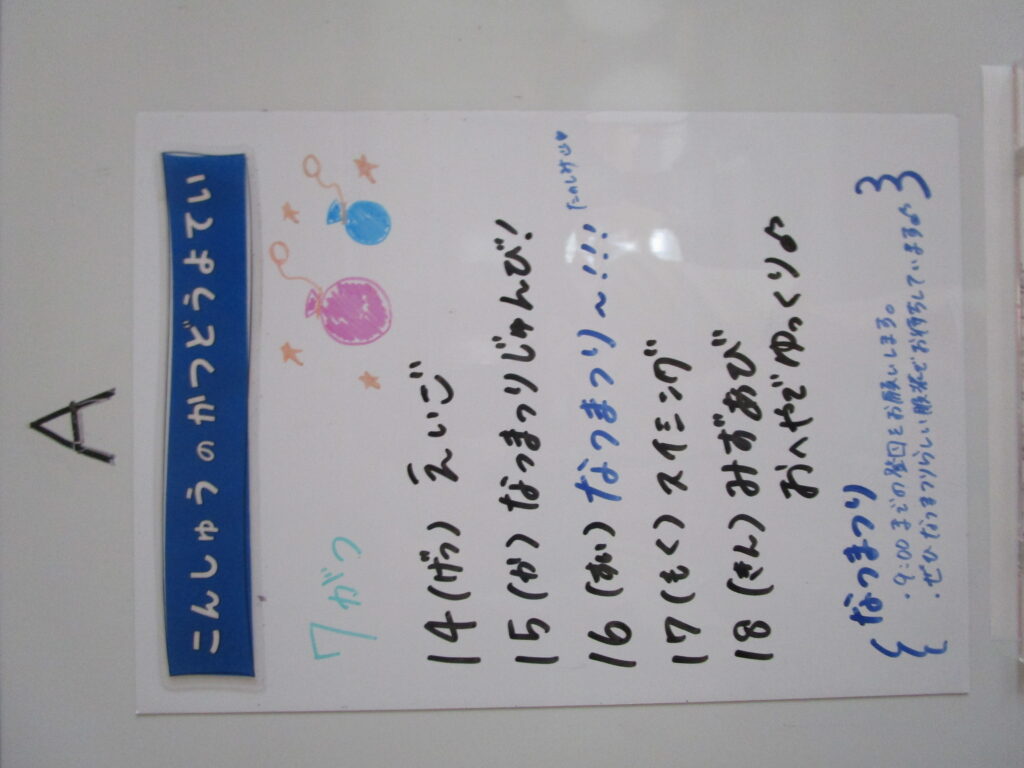 A
こんしゅうのかつどうよてい
7がつ
14(げつ) えいご
15(か) なつまつりじゅんび!
16(すい) なつまつり～!!! たのしみ♥
17(もく) スイミング
18(きん) みずあび
おへやでゆっくり♪
なつまつり
・9:00までの登園をお願いします。
・ぜひなつまつりらしい服装でお待ちしています♪